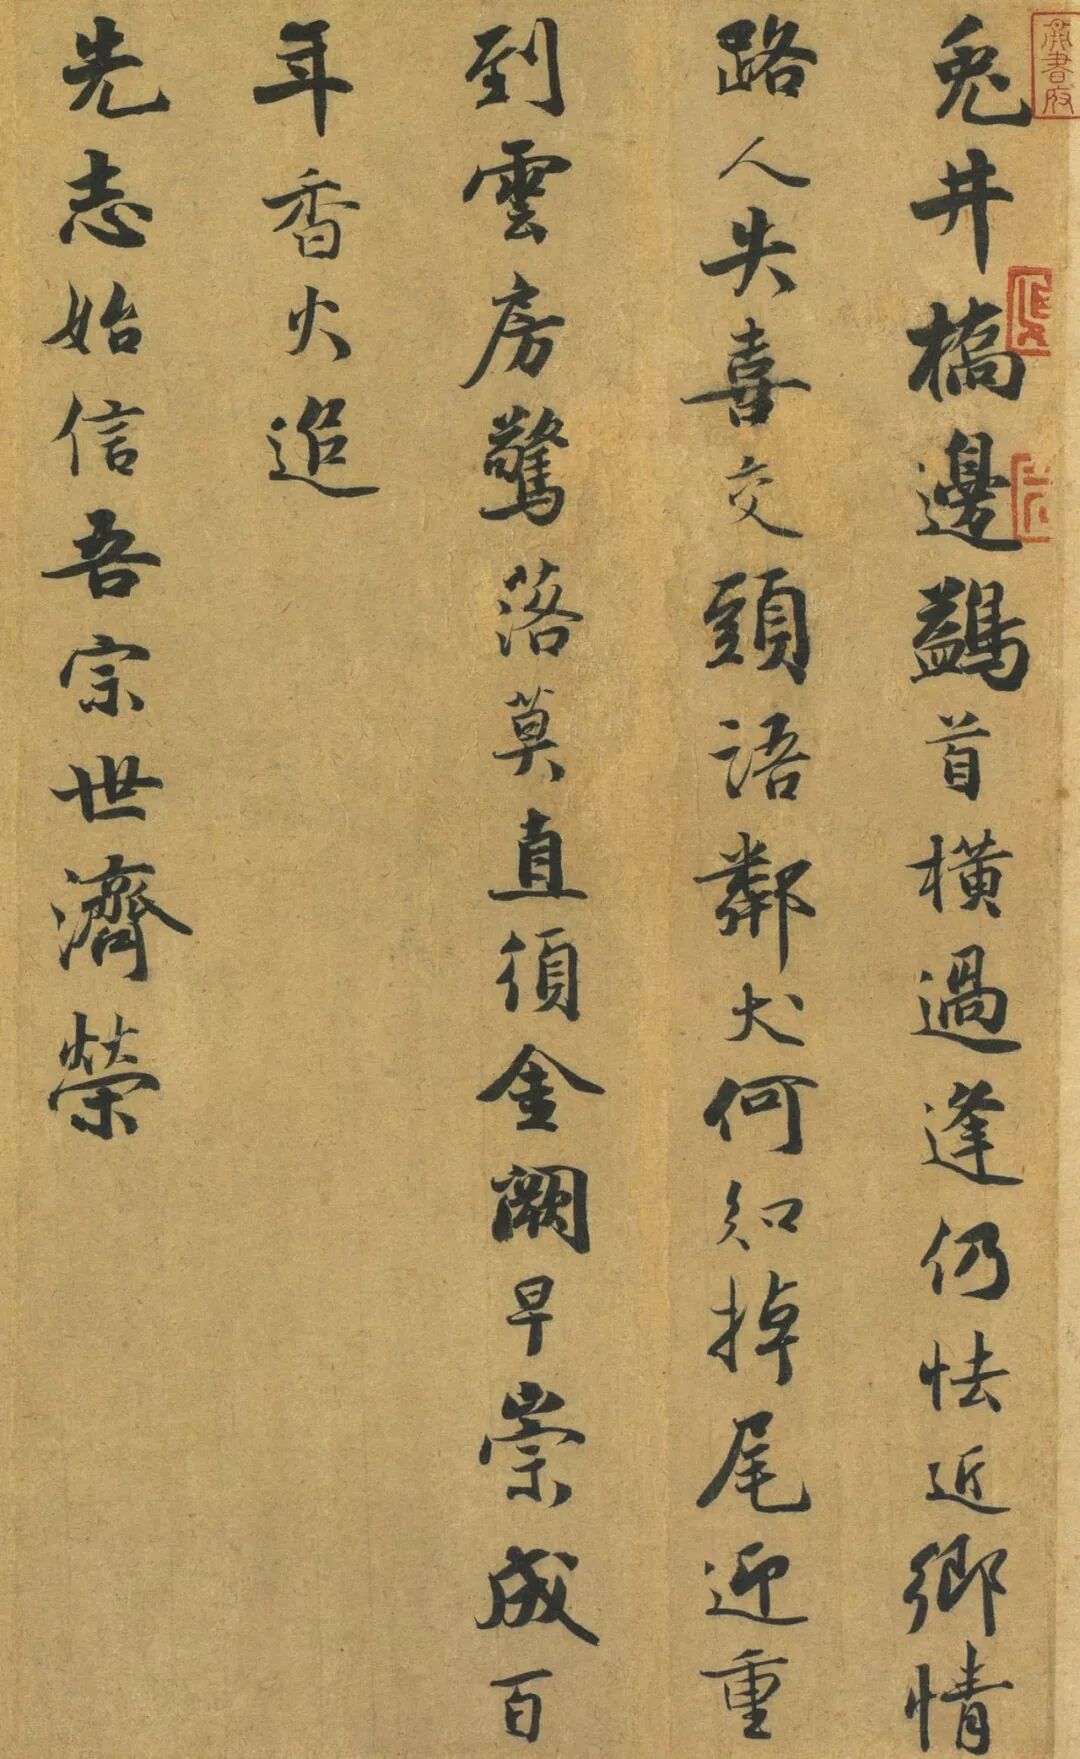 兎井橋邊鷁首橫過逢仍怯近鄉情
路人失喜交頭語鄰犬何知掉尾迎重
到雲房驚落莫直須金闕早崇成百
年香火追
先志始信吾宗世濟榮